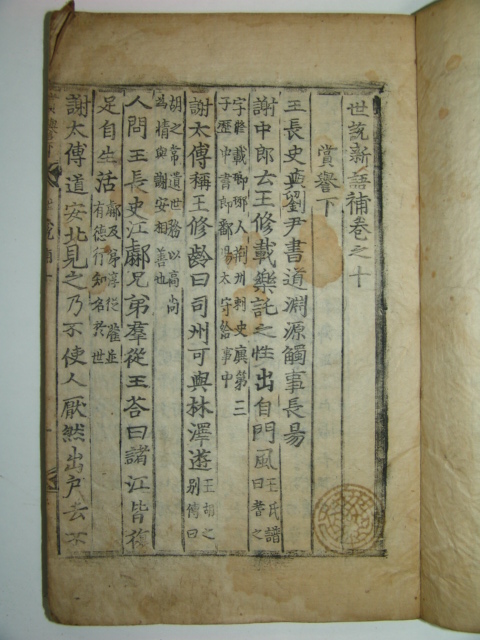 世說新語補卷之十
賞譽下
王長史與劉尹書道淵源觸事長易
謝中郎云王修載樂託之性出自門風 王氏譜曰耆之
字脩載瑯琊人荊州刺史廙第三
子歷中書郎鄱陽太守給事中
謝太傅稱王修齡曰司州可與林澤遊 王胡之別傳曰
胡之常遺世務以高尚
爲情與謝安相善也
人問王長史江虨兄弟羣從王荅曰諸江皆復
足自生活 虨及弟淳從灌並有德行知名於世
謝太傅道安北見之乃不使人厭然出戶去不